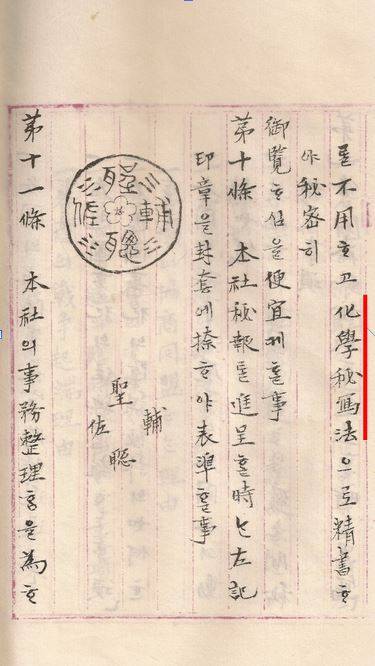 를不用ᄒᆞ고化學秘寫法으로精書ᄒᆞ
야秘密히
御覽ᄒᆞ심을便宜케ᄒᆞᆯ事
第十條 本社秘報를進呈ᄒᆞᆯ時ᄂᆞᆫ左記
印章을封套에捺ᄒᆞ야表準ᄒᆞᆯ事
輔
聖聰
佐
聖聰
輔
第十一條 本社의事務整理홈을為ᄒᆞ